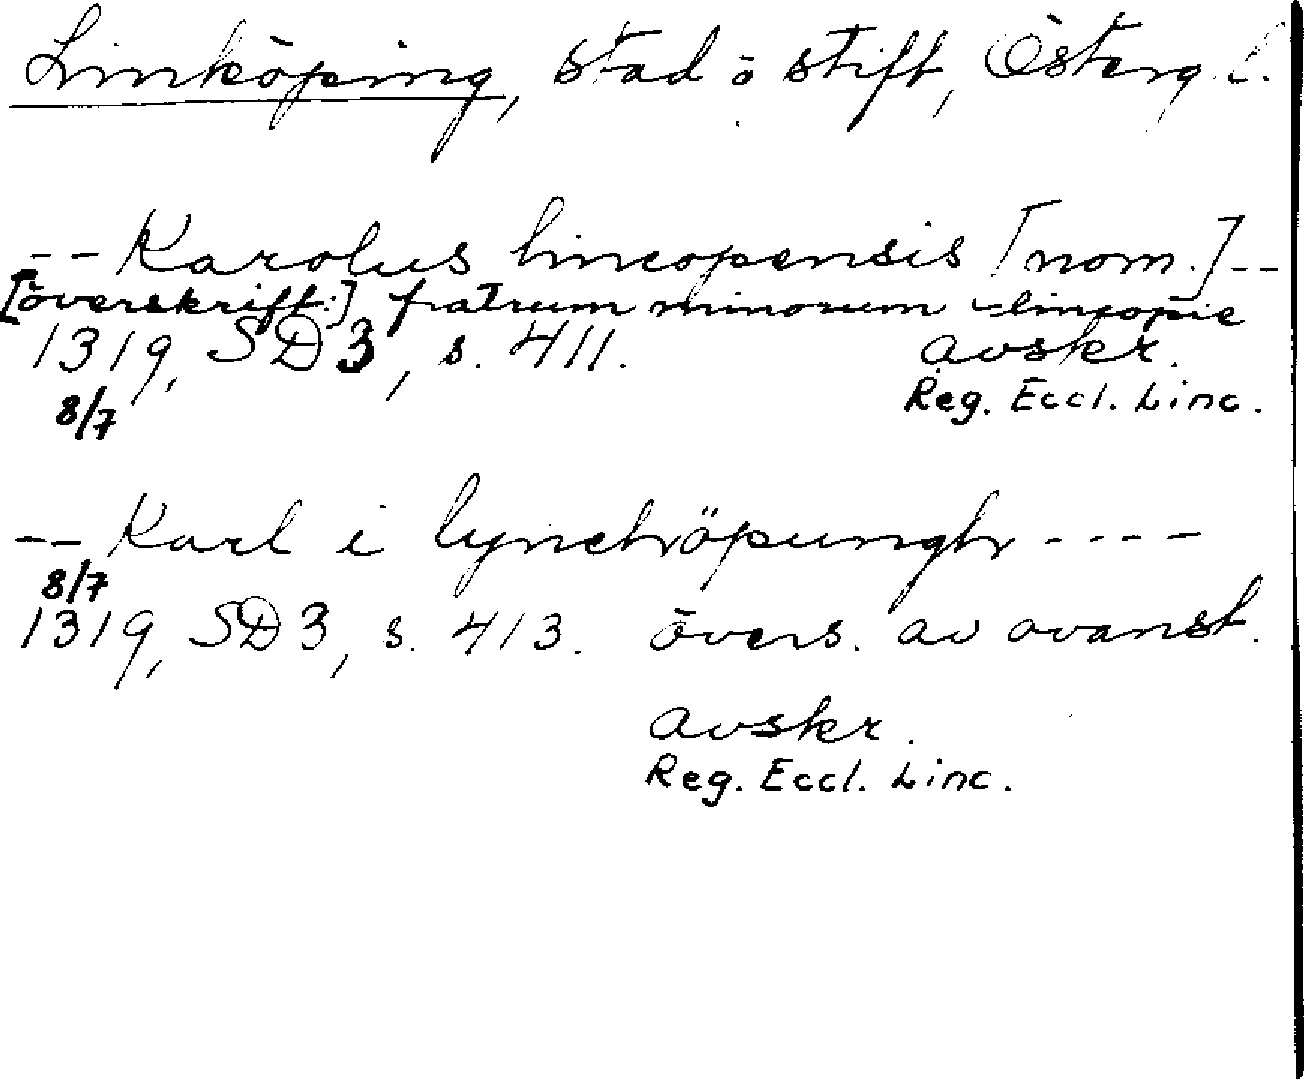 Linköping, stad o stift, Österg. l.
-- Karolus lincopensis [nom.] --
[överskrift:] fratrum minorum - lincopie
1319, SD 3, s. 411. avskr.
8/7 Reg. Eccl. Linc.
-- Karl i lynchöpungh ----
8/7
1319, SD 3, s. 413. övers. av ovanst.
avskr.
Reg. Eccl. Linc.